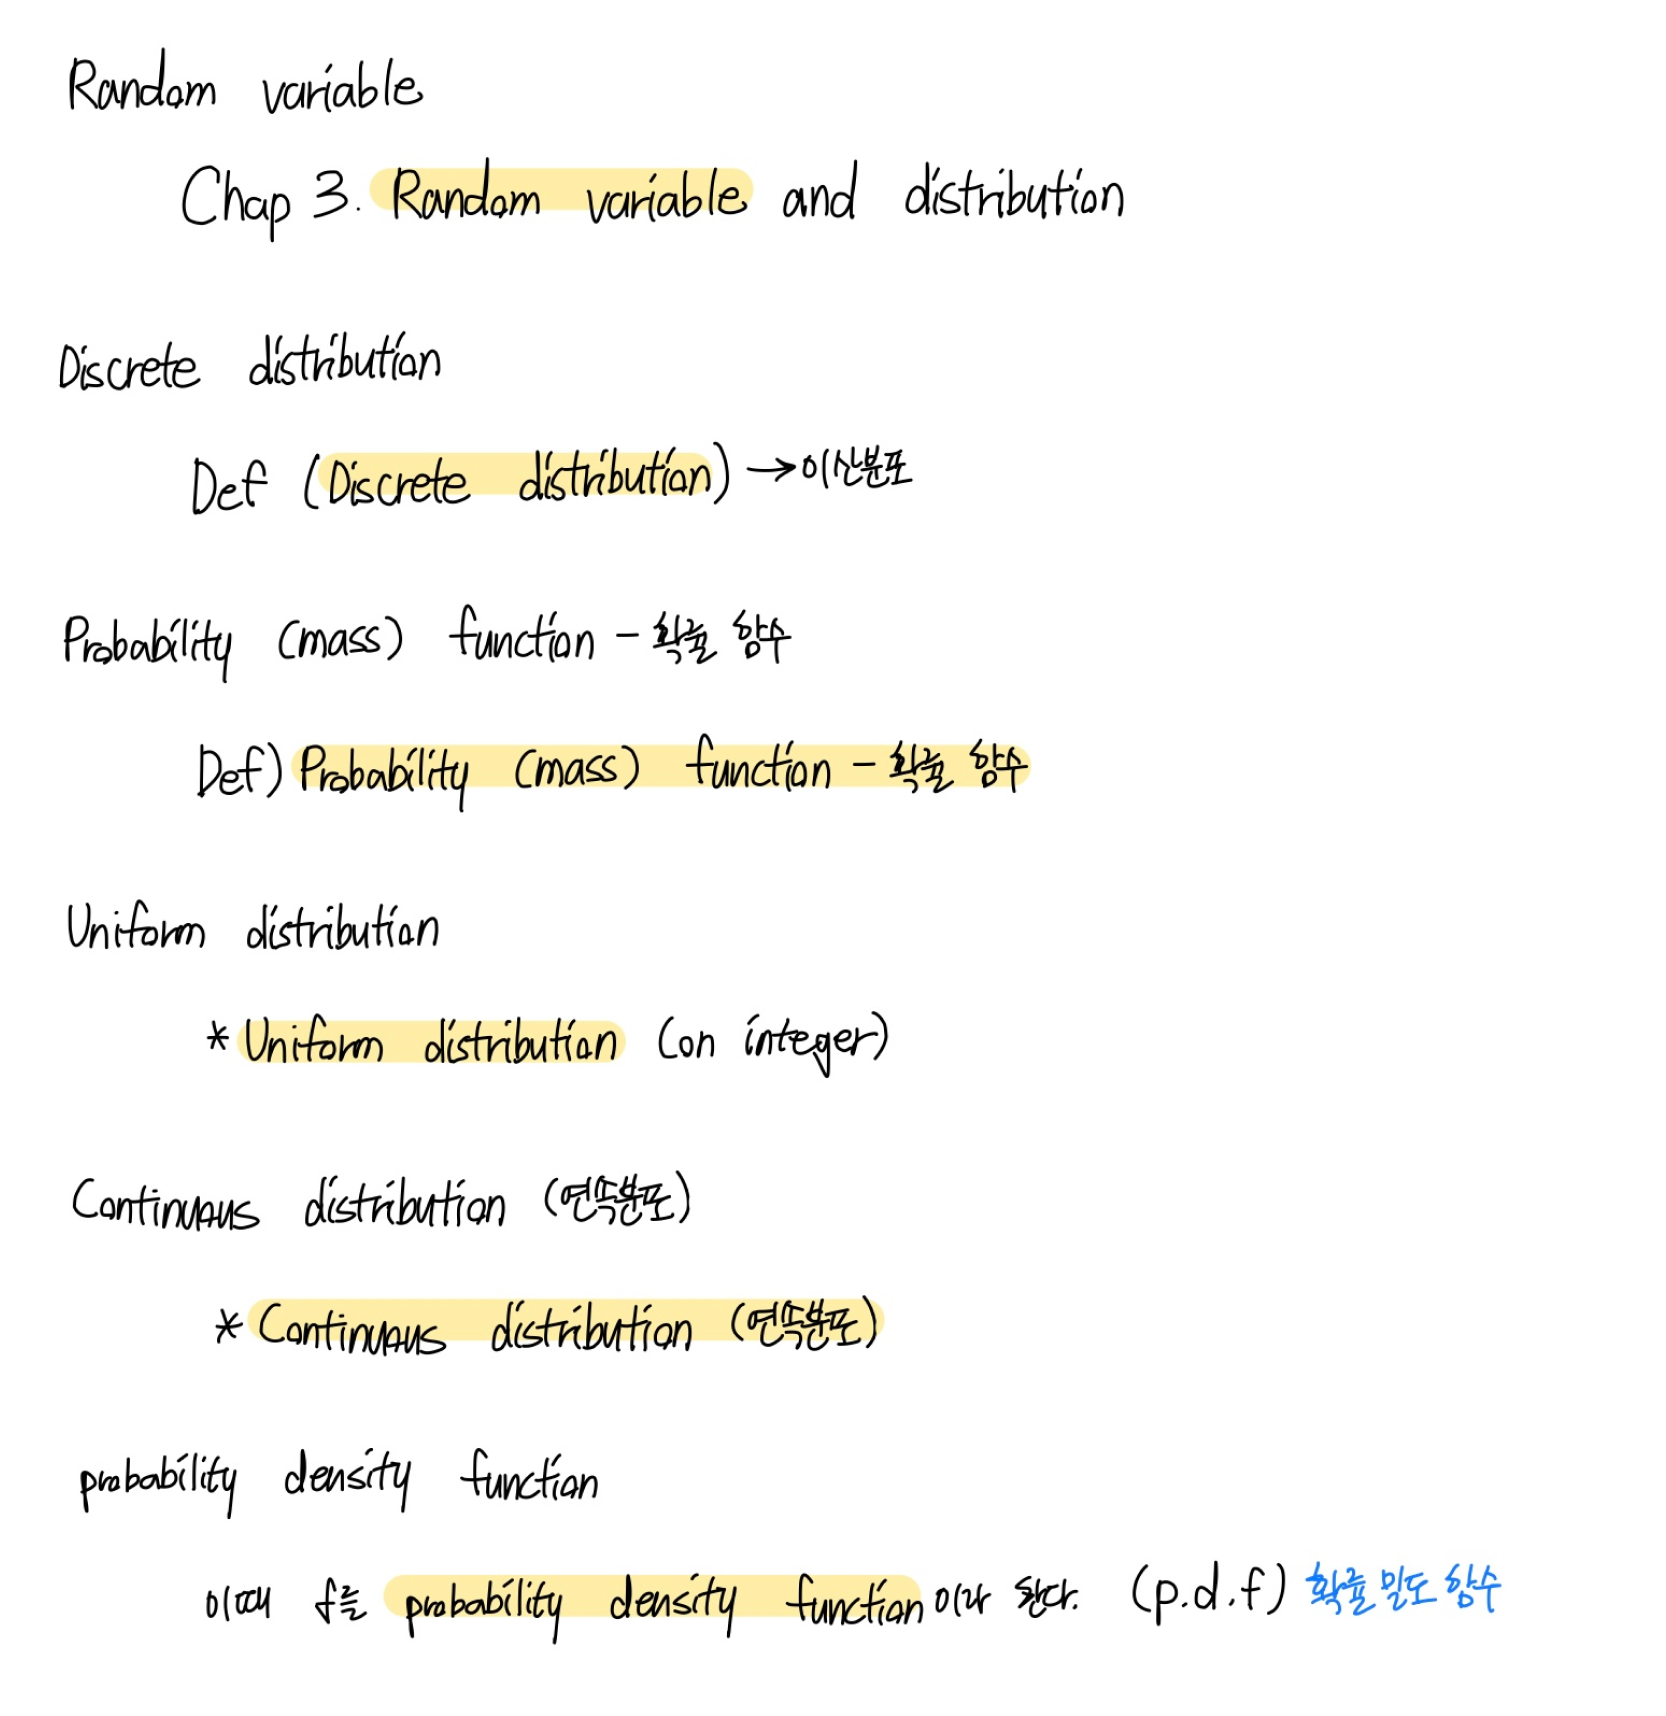 Random variable
Chap 3. Random variable and distribution
Discrete distribution
Def (Discrete distribution) → 이산분포
Probability (mass) function - 확률 함수
Def) Probability (mass) function - 확률 함수
Uniform distribution
* Uniform distribution (on integer)
Continuous distribution (연속분포)
* Continuous distribution (연속분포)
probability density function
이때 f를 probability density function이라 한다. (p.d.f) 확률 밀도 함수